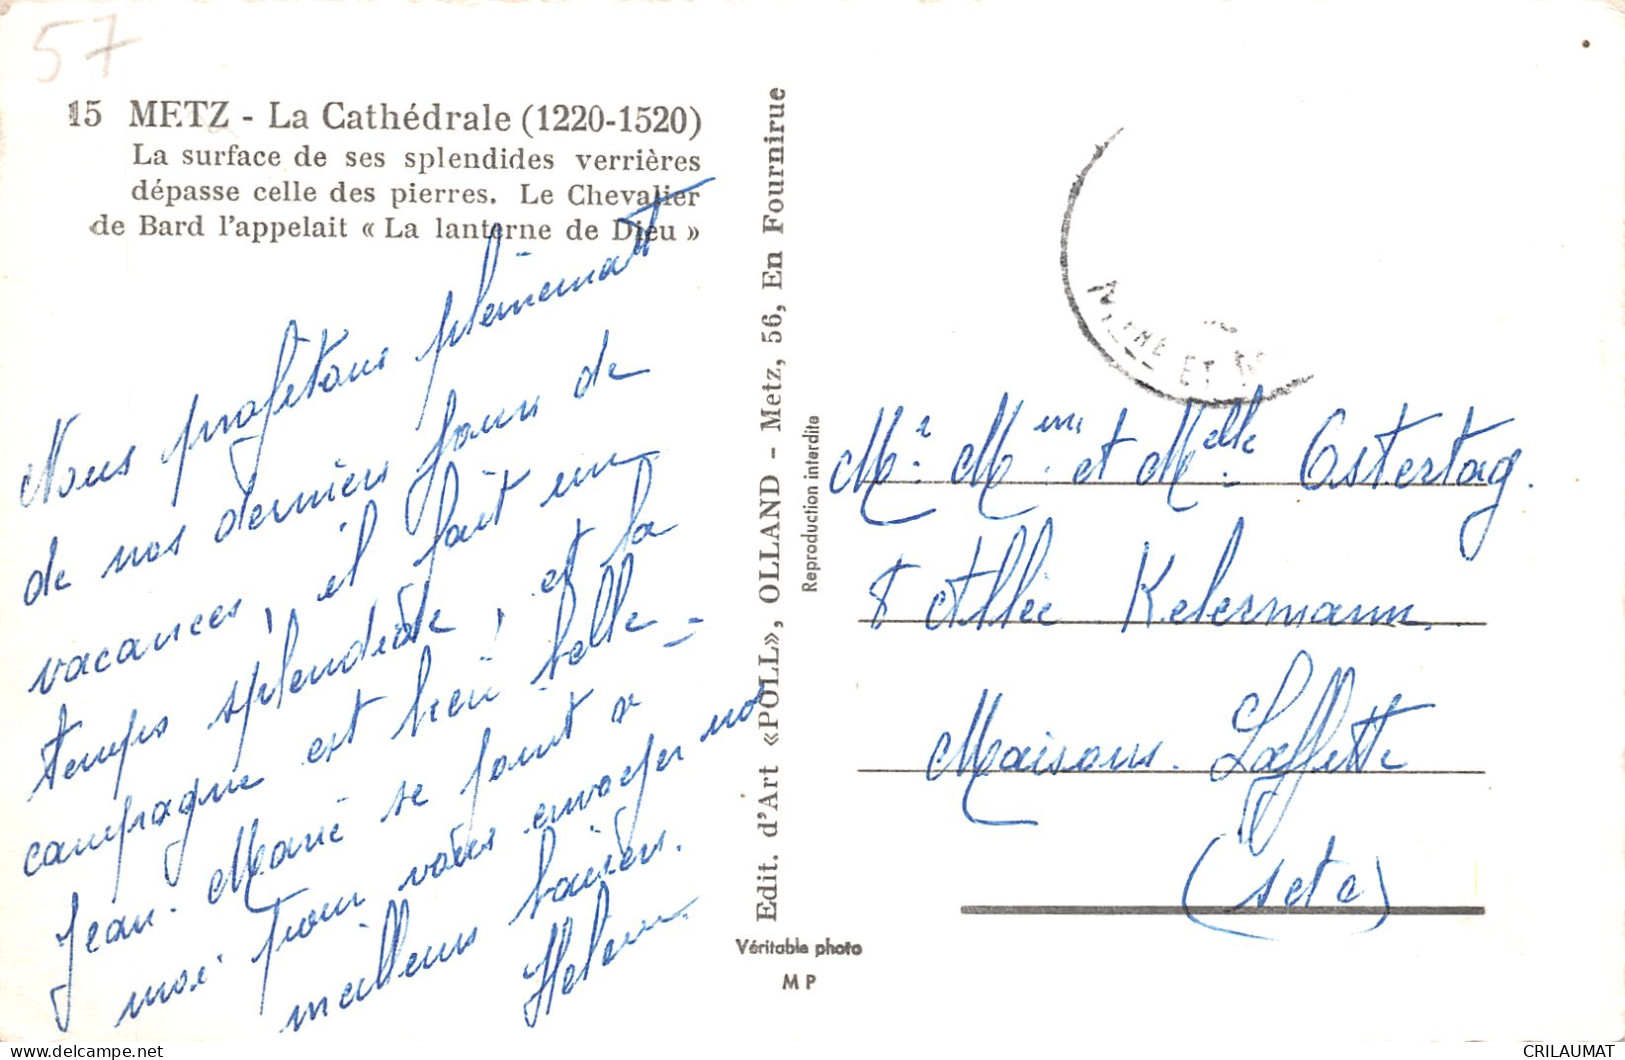 57
15 METZ - La Cathédrale (1220-1520)
La surface de ses splendides verrières
dépasse celle des pierres. Le Chevalier
de Bard l'appelait « La lanterne de Dieu »
Nous profitons pleinement
de nos derniers jours de
vacances, il fait un
temps splendide, et la
campagne est bien belle -
Jean-Marie se joint à
moi pour vous envoyer nos
meilleurs baisers.
Helene.
Edit. d'Art «POLL», OLLAND - Metz, 56, En Fournirue
Reproduction interdite
Véritable photo
MP
ET
Mr. Mme. et Melle. Ostertag.
8 Allée Kelermann.
Maisons. Laffitte
(Set O)
CRILAUMAT